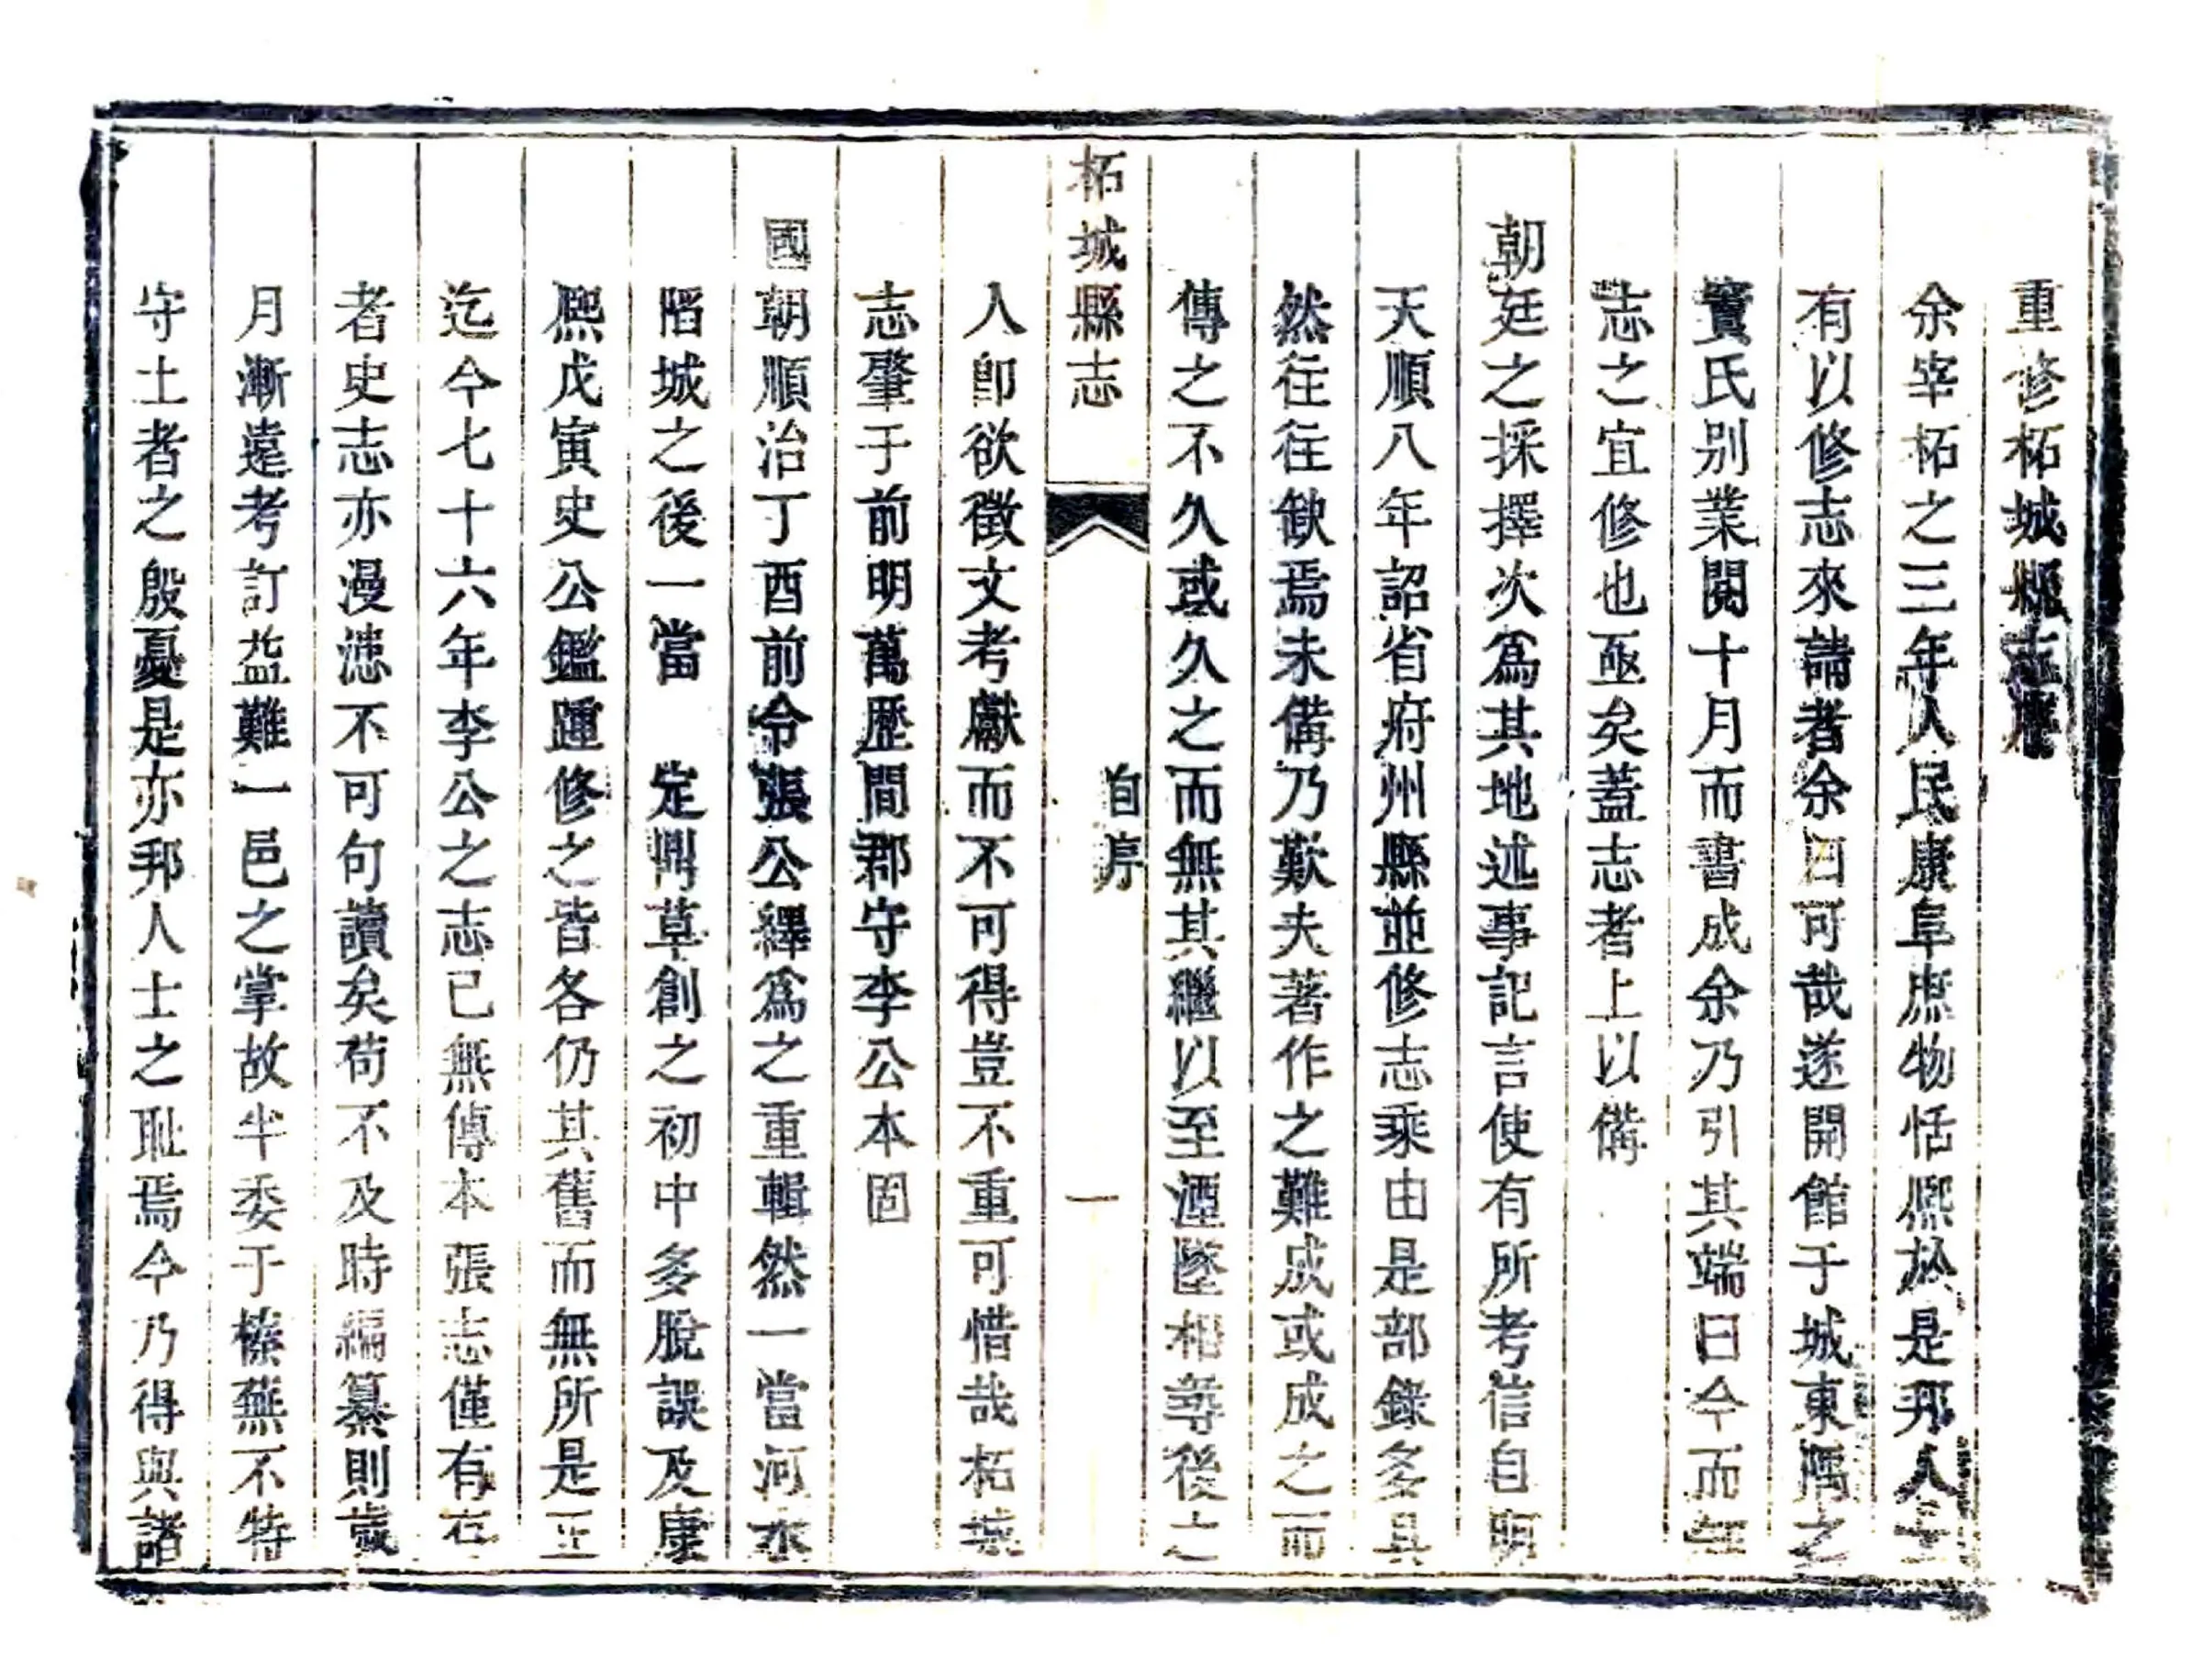 重修柘城縣志序
余宰柘之三年人民康阜庶物恬熙於是邦人士
有以修志來請者余曰可哉遂開館于城東隅之
竇氏别業閱十月而書成余乃引其端曰今而知
志之宜修也亟矣蓋志者上以備
朝廷之採擇次爲其地述事記言使有所考信自明
天順八年詔省府州縣並修志乘由是部錄多具
然往往歉焉未備乃歎夫著作之難成或成之而
傳之不久或久之而無其繼以至湮墜相等後之
柘城縣志
自序
一
人卽欲徵文考獻而不可得豈不重可惜哉柘葉
志肇于前明萬歷間郡守李公本固
國朝順治丁酉前令張公繹爲之重輯然一當河水
陷城之後一當 定鼎草創之初中多脫誤及康
熙戊寅史公鑑踵修之皆各仍其舊而無所是正
迄今七十六年李公之志已無傳本張志僅有存
者史志亦漫漶不可句讀矣苟不及時編纂則歲
月漸遠考訂益難一邑之掌故半委于榛蕪不特
守土者之殷憂是亦邦人士之耻焉今乃得與諸